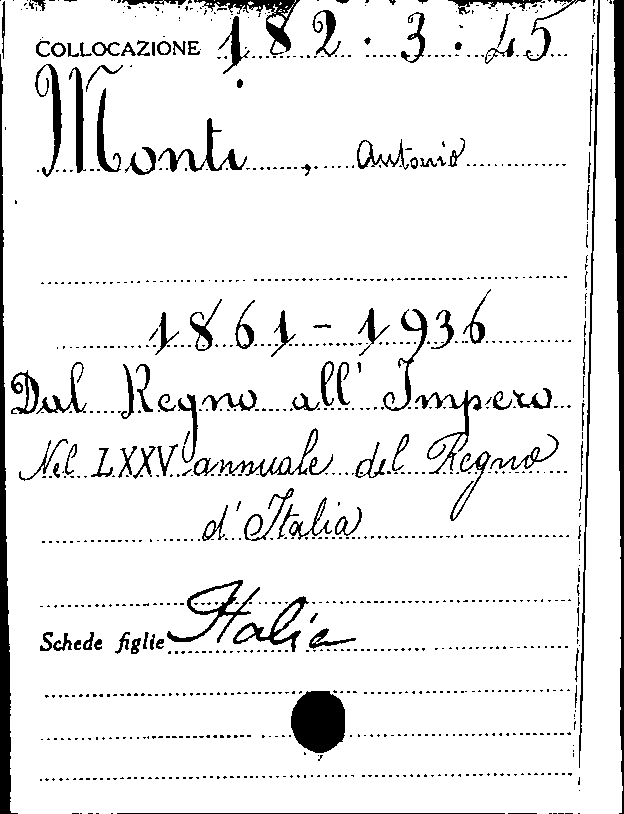 COLLOCAZIONE 182.3.45
Monti, Antonio
1861-1936
Dal Regno all' Impero
Nel LXXV annuale del Regno
d'Italia
Schede figlie Italia